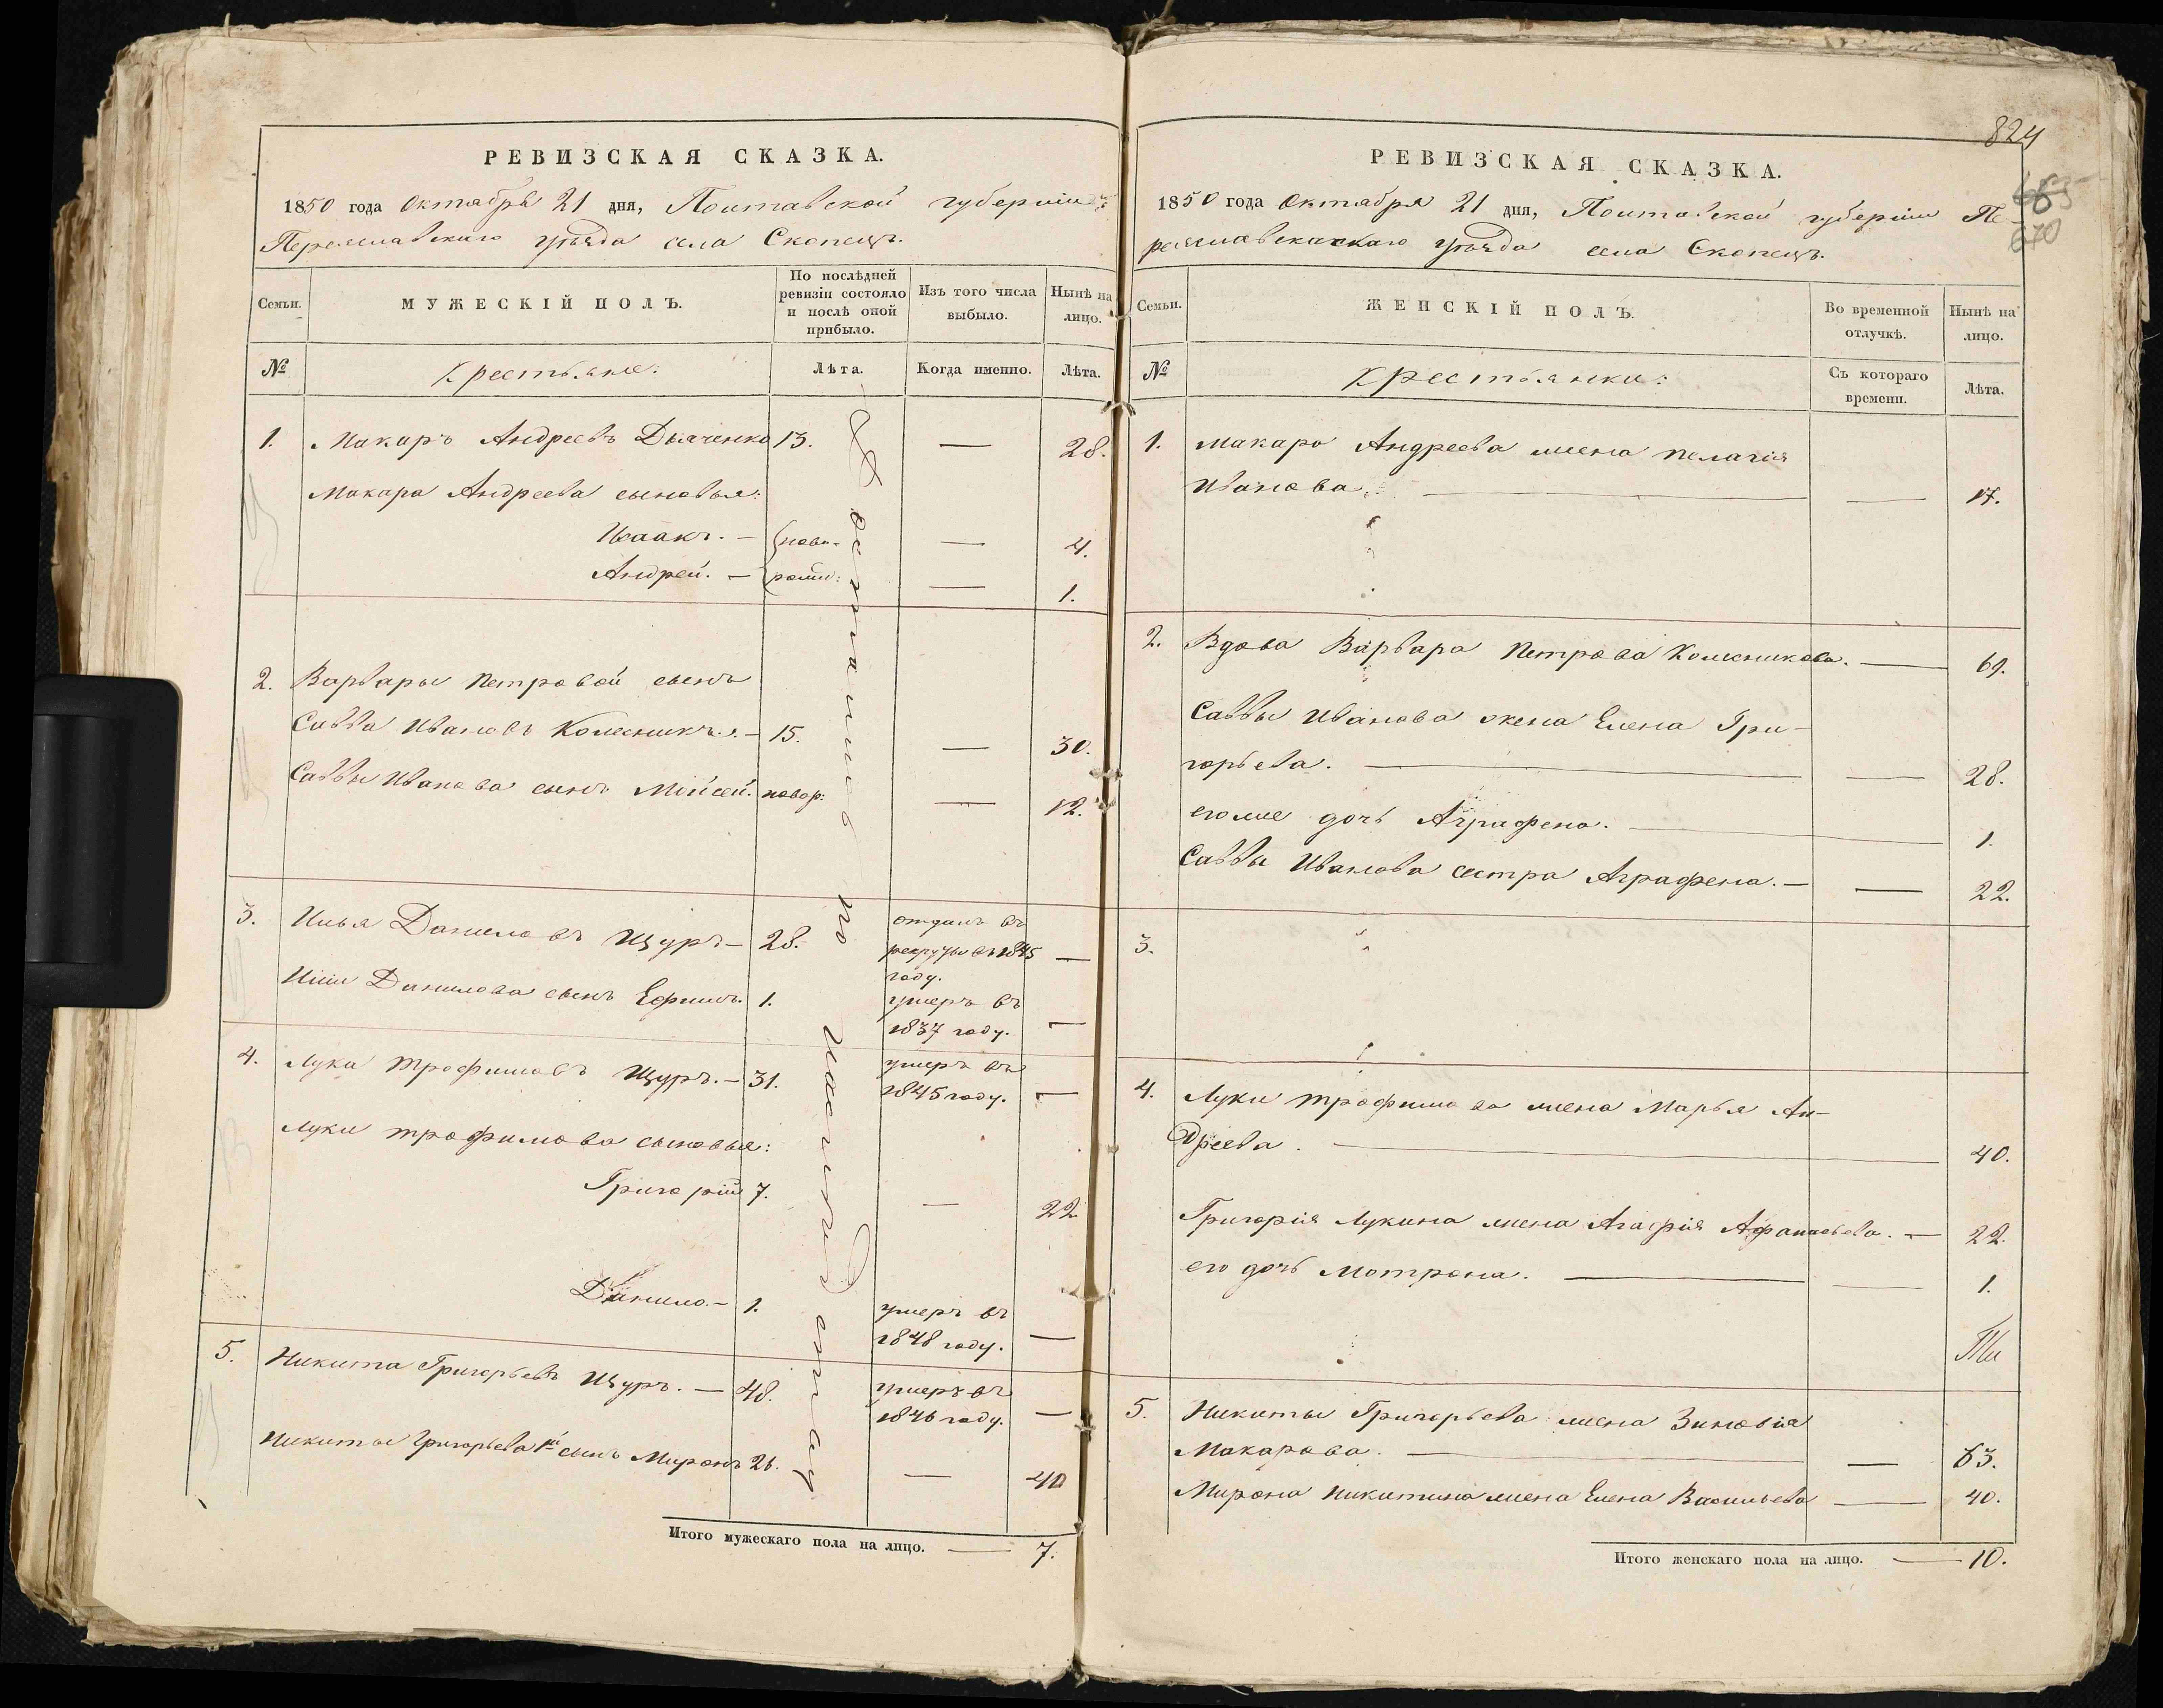 РЕВИЗСКАЯ СКАЗКА.
1850 года Октября 21 дня, Полтавской губерніи
Переяславскаго уѣзда села Скопецъ.
Семьи. МУЖЕСКІЙ ПОЛЪ. По послѣдней ревизіи состояло и послѣ оной прибыло. Изъ того числа выбыло. Нынѣ на лицо.
№ Крестьяне: Лѣта. Когда именно. Лѣта.
1. Макаръ Андреевъ Дьяченко 13. — 28.
Макара Андреева сыновья:
Исаакъ. — (ново- — 4.
Андрей. — рожд: — 1.
2. Варвары Петровой сынъ
Савва Ивановъ Колесникъ. — 15. — 30.
Саввы Иванова сынъ Мойсей. новор: — 12.
3. Илья Даниловъ Щуръ — 28. отданъ въ
рекруты въ 1845 —
году.
Ильи Данилова сынъ Ефимъ. 1. умеръ въ
1837 году. —
4. Лука Трофимовъ Щуръ. — 31. умеръ въ
1845 году. —
Луки Трофимова сыновья:
Григорій 7. — 22
Данило. — 1. умеръ въ
1848 году. —
5. Никита Григорьевъ Щуръ. — 48. умеръ въ
1846 году. —
Никиты Григорьева сынъ Миронъ 26. — 40
Итого мужескаго пола на лицо. — 7.
824
685
670
РЕВИЗСКАЯ СКАЗКА.
1850 года Октября 21 дня, Полтавской губерніи Пе-
реяславскаго уѣзда села Скопецъ.
Семьи. ЖЕНСКІЙ ПОЛЪ. Во временной отлучкѣ. Нынѣ на лицо.
№ Крестьянки: Съ котораго времени. Лѣта.
1. Макара Андреева жена Пелагія
Иванова. — — 17.
2. Вдова Варвара Петрова Колесникова. — 61.
Саввы Иванова жена Елена Гри-
горьева. — — 28.
его же дочь Аграфена. — 1.
Саввы Иванова сестра Аграфена. — — 22.
3.
4. Луки Трофимова жена Марья Ан-
дреева. — 40.
Григорія Лукина жена Агафія Афанасьева. — 22.
его дочь Мотрона. — — 1.
5. Никиты Григорьева жена Зиновія
Макарова. — — 63.
Мирона Никитина жена Елена Васильева — 40.
Итого женскаго пола на лицо. — 10.